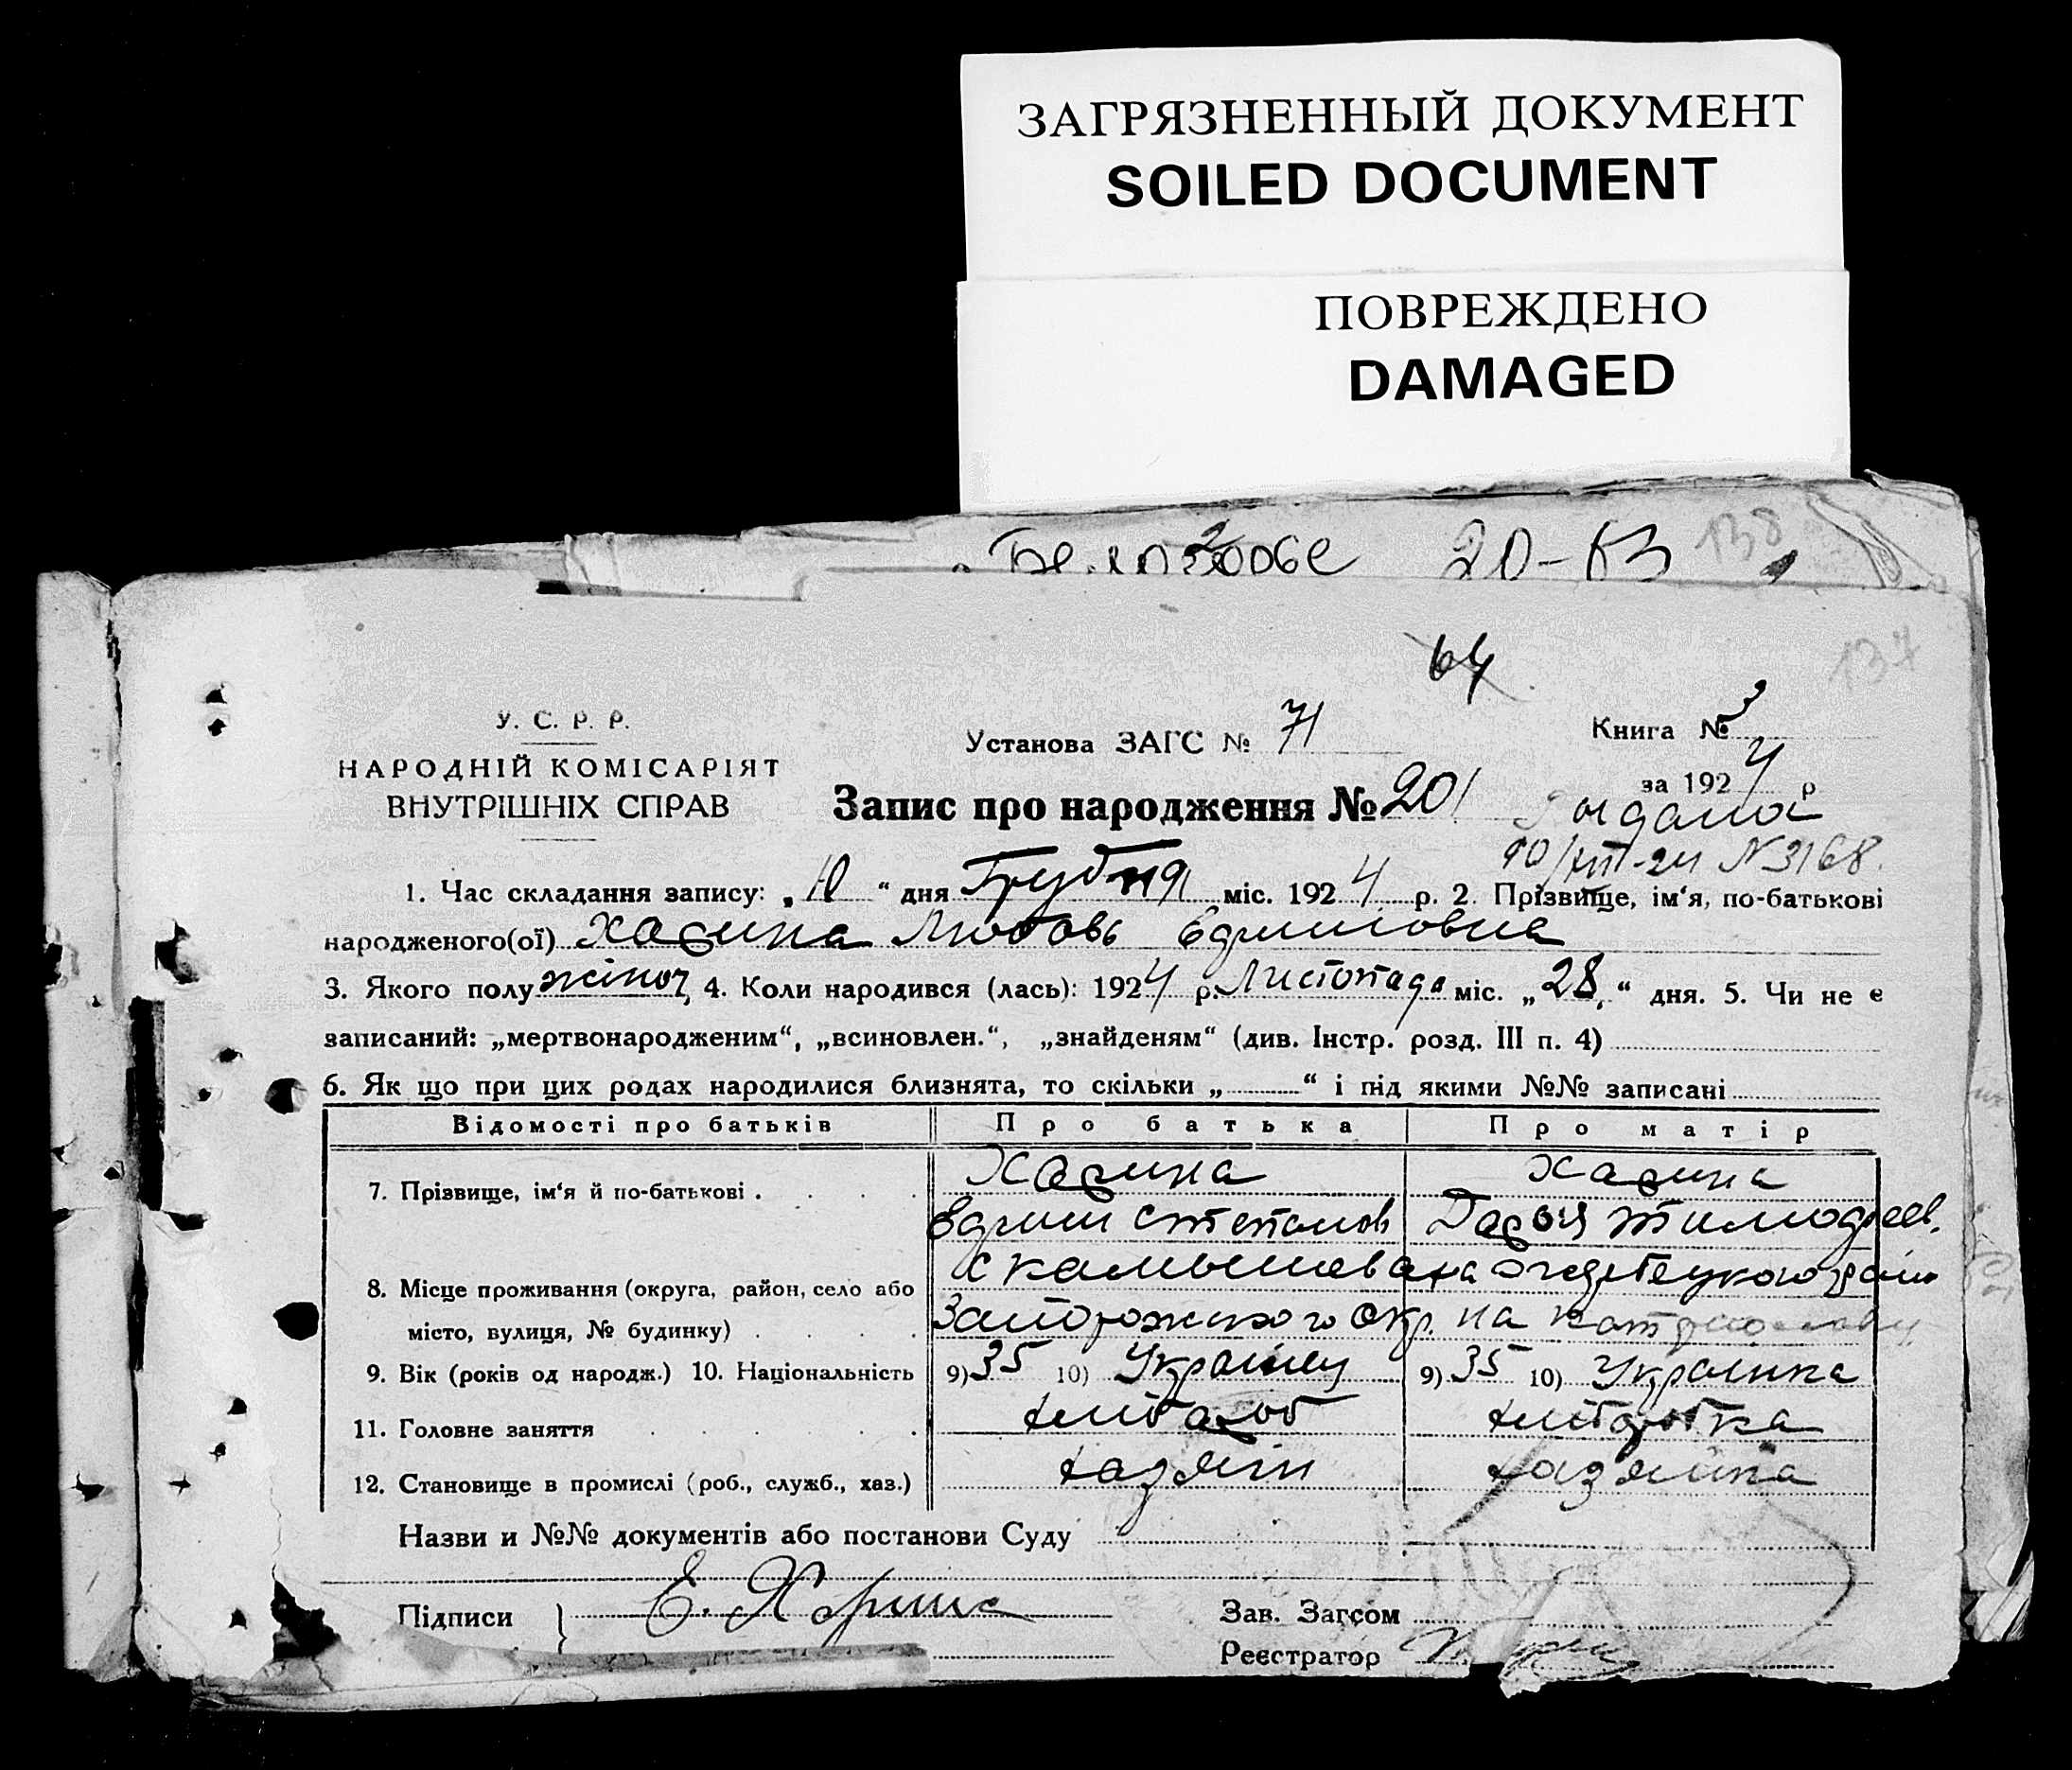 ЗАГРЯЗНЕННЫЙ ДОКУМЕНТ
SOILED DOCUMENT
ПОВРЕЖДЕНО
DAMAGED
20-
138
64
137
У. С. Р. Р.
НАРОДНІЙ КОМІСАРІЯТ
ВНУТРІШНІХ СПРАВ
Установа ЗАГС № 71
Книга № 3
за 1924 р
Запис про народження № 201
10/XII-24 N 3168.
1. Час складання запису: „10“ дня Грудня міс. 1924 р. 2. Прізвище, ім‘я, по-батькові
народженого(ої) Харина Любовь
3. Якого полу жіноч, 4. Коли народився (лась): 1924 р. Листопада міс. „28“ дня. 5. Чи не є
записаний: „мертвонародженим“, „всиновлен.“, „знайденям“ (див. Інстр. розд. III п. 4)
6. Як що при цих родах народилися близнята, то скільки „ “ і під якими №№ записані
Відомості про батьків Про батька Про матір
7. Прізвище, ім‘я й по-батькові . . . . Харина Харина
Степанов Дарья Тимофеев.
8. Місце проживання (округа, район, село або с Камышеваха
місто, вулиця, № будинку) . . . . Запорожского окр. на
9. Вік (років од народж.) 10. Національність 9) 35 10) Украінец 9) 35 10) Украінка
11. Головне заняття хлібороб хліборобка
12. Становище в промислі (роб., служб., хаз.) хазяін хазяйка
Назви и №№ документів або постанови Суду
Підписи } Е. Харина Зав. Загсом
Реєстратор